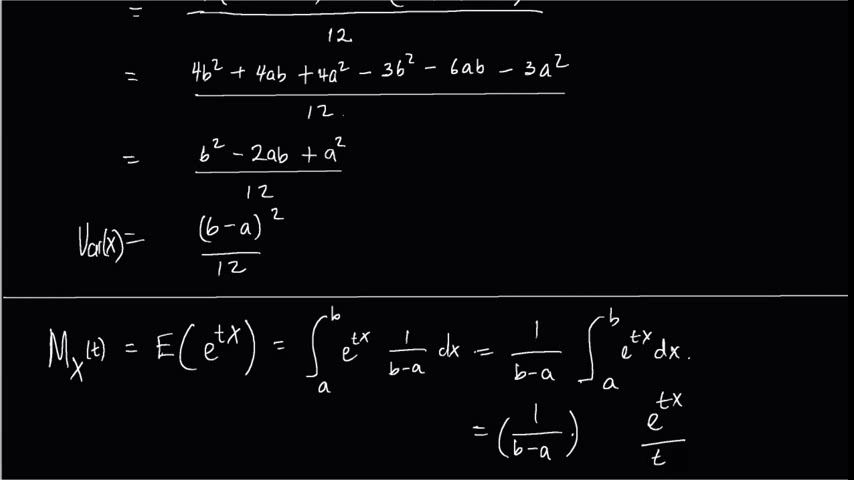 = 12
= 4b² + 4ab + 4a² - 3b² - 6ab - 3a² / 12.
= b² - 2ab + a² / 12
Var(x) = (b-a)² / 12
M_X(t) = E(e^{tx}) = ∫_a^b e^{tx} 1/(b-a) dx = 1/(b-a) ∫_a^b e^{tx} dx.
= (1/(b-a)). e^{tx}/t